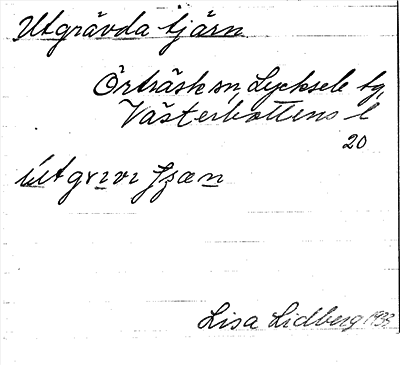 Utgrävda tjärn
Örträsk sn, Lycksele tg
Västerbottens l
20
Lisa Lidberg 1933